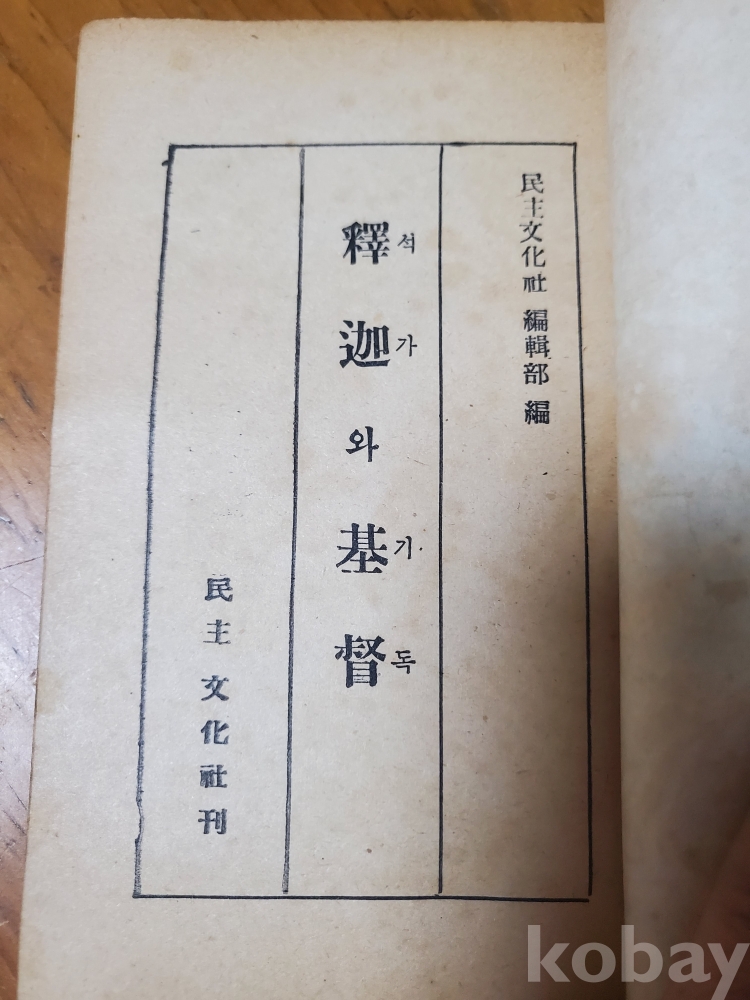 民主文化社 編輯部 編
釋迦와基督
석가기독
民主文化社刊
kobay